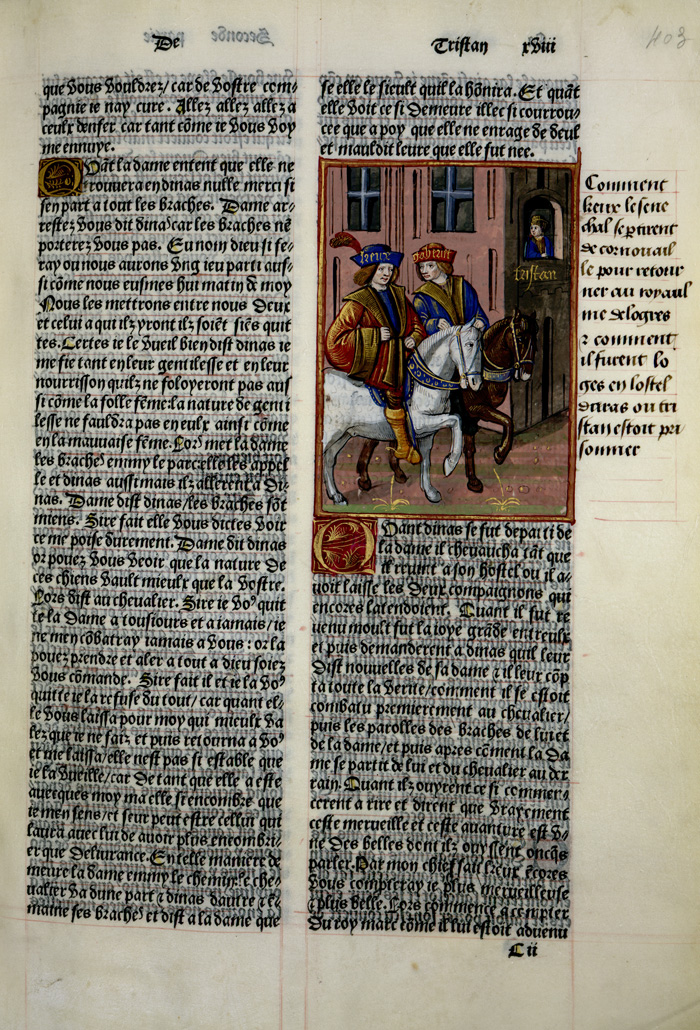 De
Tristan xviii
403
que vous vouldrez/ car de vostre com-
pagnie ie nay cure. Allez allez allez a
ceulx denfer car tant cõme ie vous voy
me ennuye.
Quãt la dame entent que elle ne
trouvera en dinas nulle merci si
sen part a tout les braches. Dame ar-
restez vous dit dinas car les braches nẽ
porterez vous pas. Eu nom dieu si fe-
ray ou nous aurons ung ieu parti aus-
si cõme nous eusmes hui matin & moy
Nous les mettrons entre nous deux
et celui a qui ilz yront ilz soiẽt siẽs quit
tes. Certes ie le vueil bien dist dinas ie
me fie tant en leur gentilesse et en leur
nourrisson quilz ne foloyeront pas aus
si cõme la folle fẽme: la nature de genti
lesse ne fauldra pas en eulx ainsi cõme
en la mauvaise fẽme. Lors met la dame
les braches emmy le parcelle les appel
le et dinas aussi mais ilz allerẽt a di-
nas. Dame dist dinas/ les braches sõt
miens. Sire fait elle vous dictes voir
ce me poise durement. Dame dit dinas
or pouez vous veoir que la nature de
ces chiens vault mieulx que la vostre.
Lors dist au chevalier. Sire ie voꝰ quit
te la dame a tousiours et a iamais/ ie
ne men cõbatray iamais a vous: or la
pouez prendre et aler a tout a dieu soiez
vous cõmande. Sire fait il et ie la voꝰ
quitte ie la refuse du tout/ car quant el-
le vous laissa pour moy qui mieulx va
lez que ie ne faiz et puis retourna a voꝰ
et me laissa/ elle nest pas si estable que
ie la vueille/ car de tant que elle a este
avecques moy ma elle si encombre que
ie men sens/ et seur peut estre cellui qui
laura avec lui de avoir plus encombri-
er que delivrance. En telle maniere de
meure la dame emmy le chemin: le che-
valier va dune part & dinas dautre & ẽ-
maine ses braches et dist a la dame que
se elle le sieult quil la hõnira. Et quãt
elle voit ce si demeure illec si courrou-
cee que a poy que elle ne enrage de deul
et mauldit leure que elle fut nee.
keux
gaheriet
tristan
Comment
keux le sene
chal se ptirent
de cornouail
le pour retour
ner au royaul
me de logres
⁊ comment
il furent lo
ges en lostel
dinas ou tri
stan estoit pri
sonnier
Quant dinas se fut departi de
la dame il chevaucha tãt que
il vint a son hostel ou il a-
voit laisse les deux compaignons qui
encores latendoient. Quant il fut re
venu moult fut la ioye grãde entreulx
et puis demanderent a dinas quil leur
dist nouvelles de sa dame & il leur cõp
ta toute la verite/ comment il se estoit
combatu premierement au chevalier/
puis les parolles des braches de lui et
de la dame/ et puis apres cõment la da
me se partit de lui et du chevalier au der
rain. Quant ilz ouyrent ce si commen-
cerent a rire et dirent que vrayement
ceste merveille et ceste avanture est u-
ne des belles dont ilz ouyssent oncqs
parler. Par mon chief fait keux ẽcores
vous compteray ie plus merveilleuse
& plus belle. Lors commence a compter
du roy marc cõme il lui estoit advenu
C ii